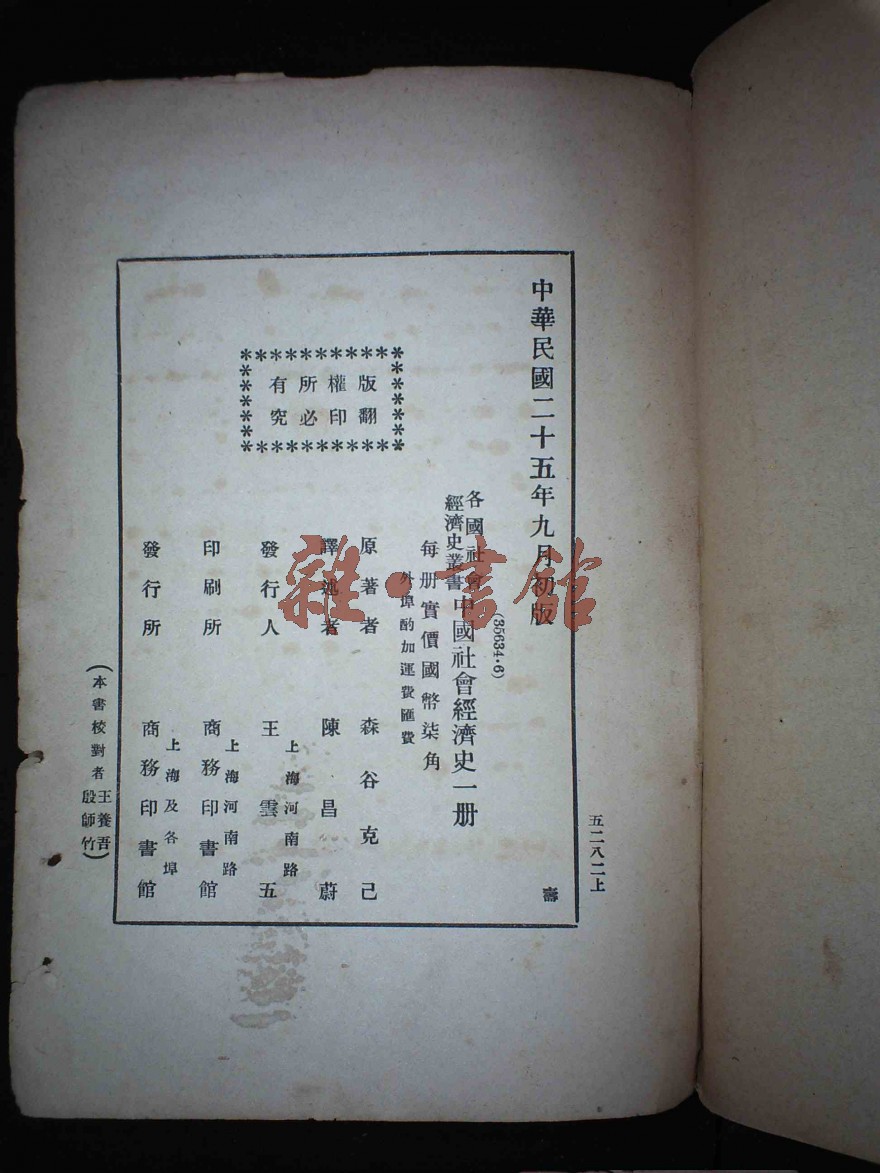 五二八二上
中華民國二十五年九月初版
壽
(35634·6)
各國社會經濟史叢書
中國社會經濟史一册
每册實價國幣柒角
外埠酌加運費匯費
版權所有
翻印必究
原著者 森谷克己
譯述者 陳昌蔚
發行人 王雲五
上海河南路
印刷所 商務印書館
上海河南路
發行所 商務印書館
上海及各埠
(本書校對者 王養吾 殷師竹)
雜·書館